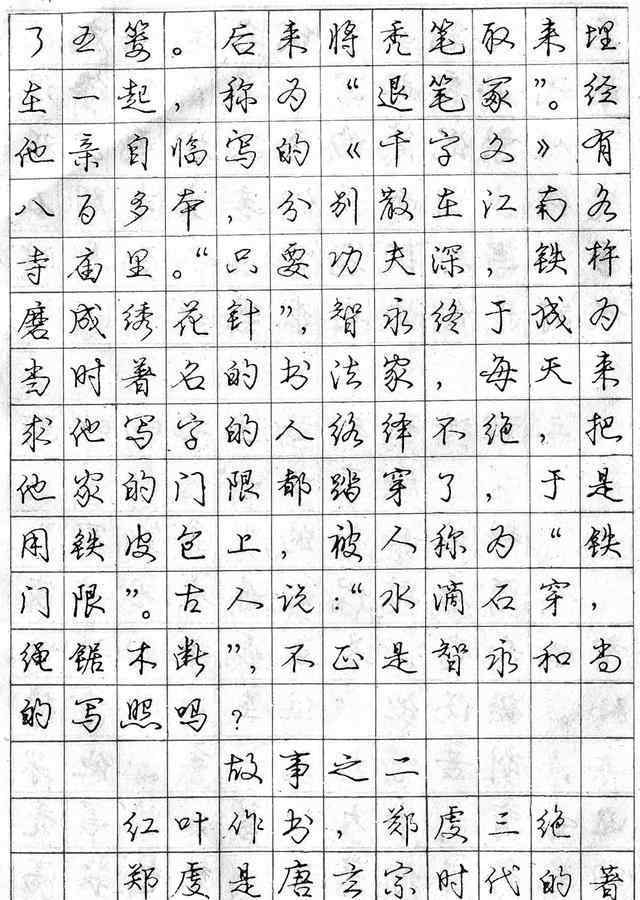 了五篓。后来将秃笔取来埋
在一起，称为“退笔冢”。经
他亲自临写的《千字文》有
八百多本，分别散在江南各
寺庙里。“只要功夫深，铁杵
磨成绣花针”，智永终于成为
当时著名的书法家，每天来
求他写字的人络绎不绝，把
他家的门限都踏穿了，于是
用铁皮包上，被人称为“铁
门限”。古人说：“水滴石穿，
绳锯木断”，不正是智永和尚
的写照吗？
故事之二
红叶作书，郑虔三绝
郑虔是唐玄宗时代的著